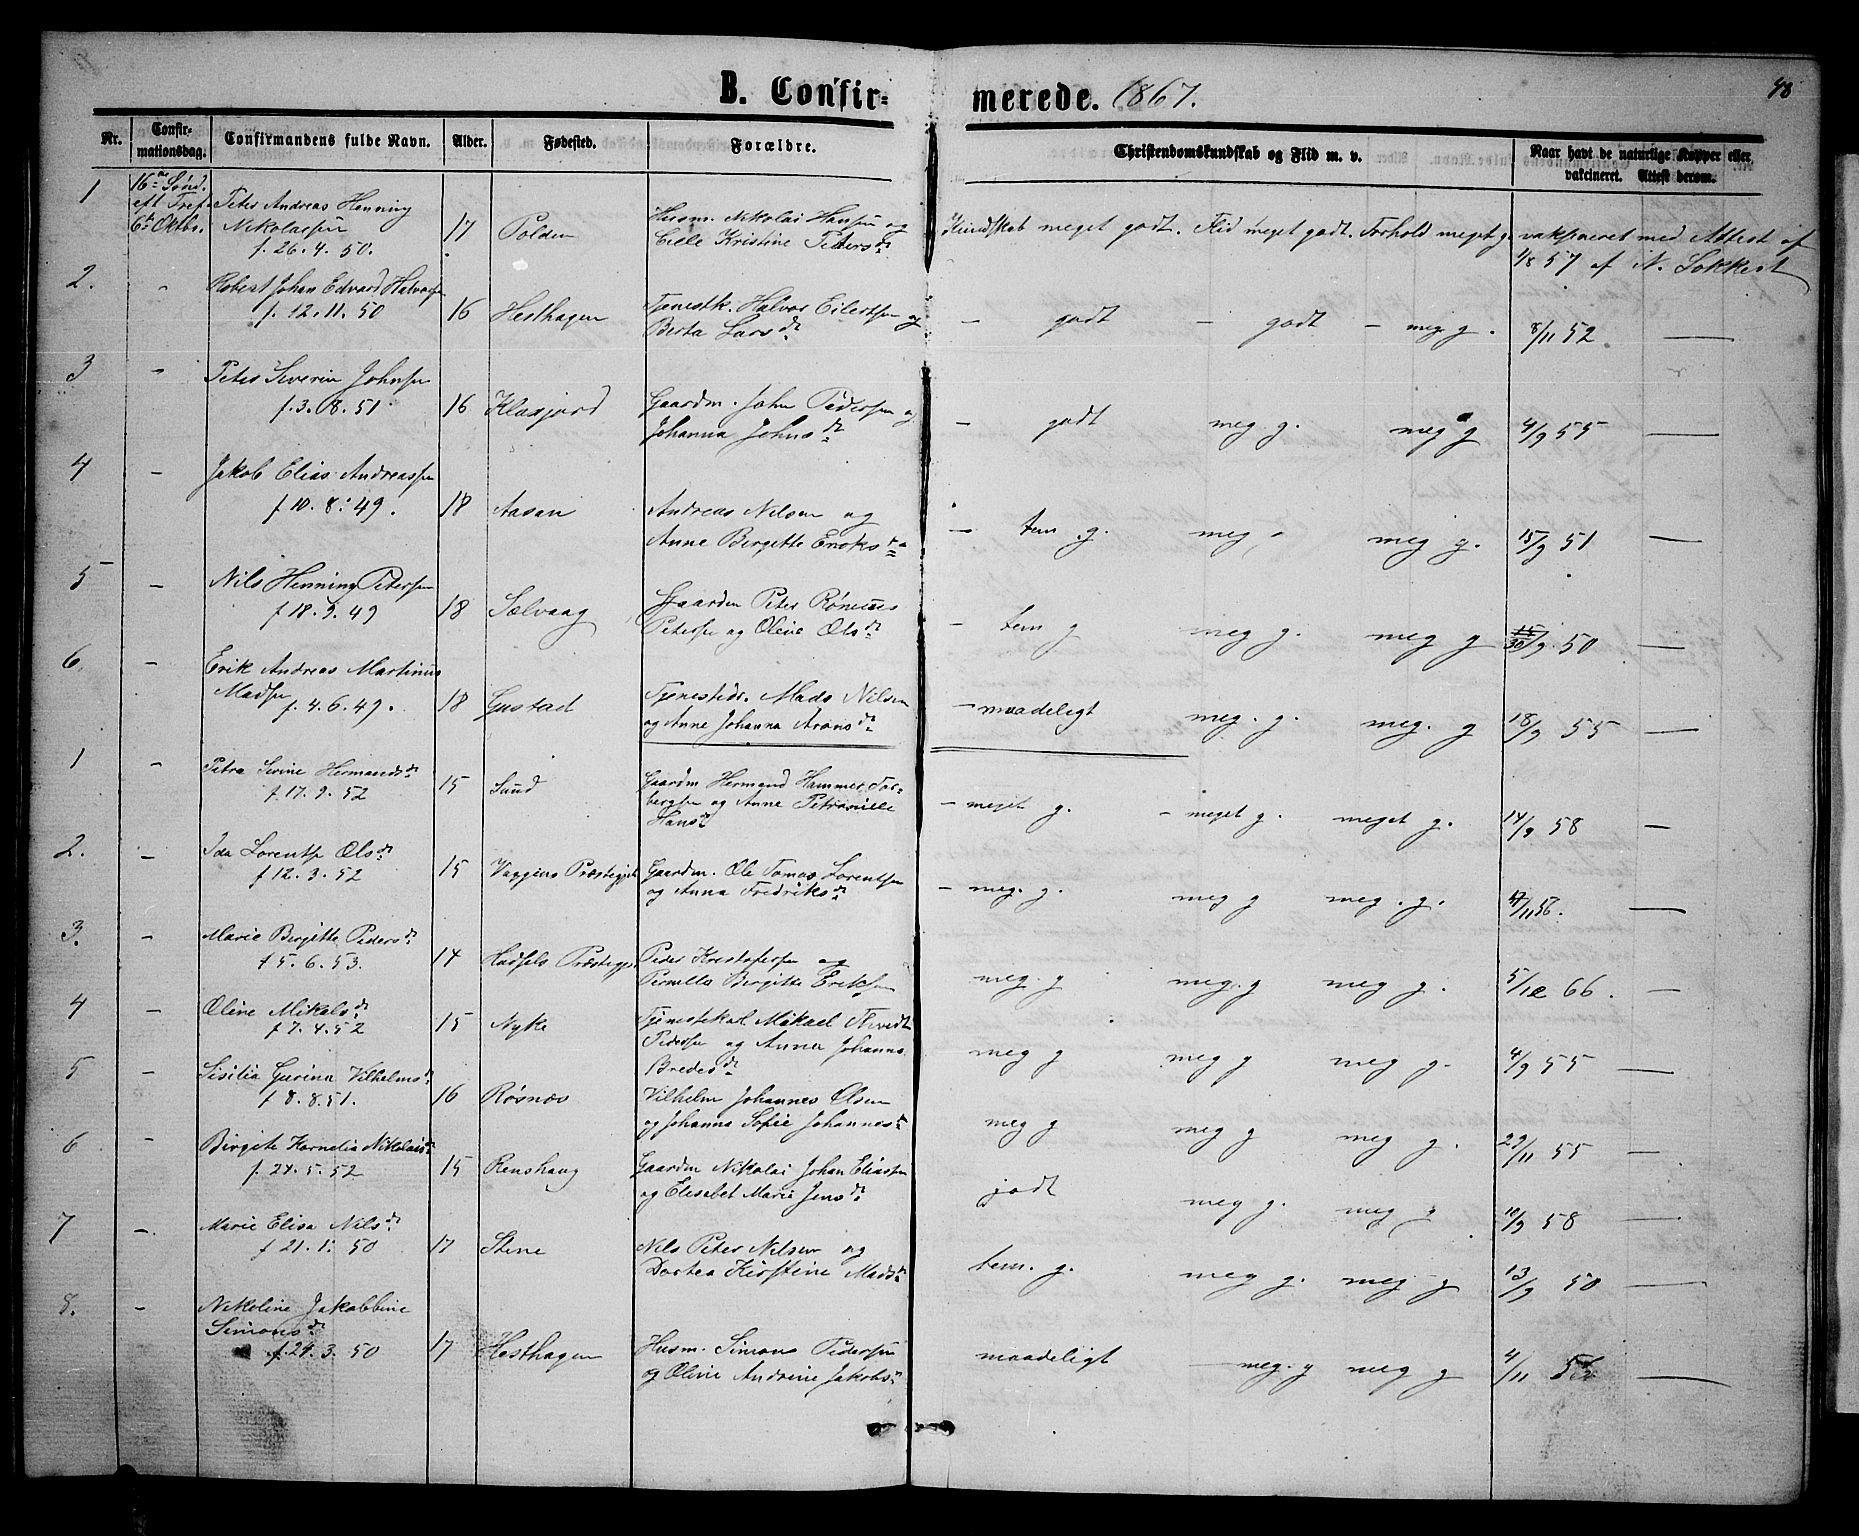 B. Confirmerede. 1867.
48
Nr. Confirmationsdag. Confirmandens fulde Navn. Alder. Fødested. Forældre. Christendomskundskab og Flid m. v. Naar havt de naturlige Kopper eller vakcineret. Attest derom.
1 16de Sønd. eft Tref. 6te Oktbr. Peter Andreas Henning
Nikolaisen 17 Polden Husm. Nikolai Hansen og
f. 26.4.50. Cecile Kristine Petersdr. Kundskab meget godt. Flid meget godt. Forhold meget g. vaksineret med Attest af
4/8 57 af N. Lokkert
2. " Robert Johan Edvard Halvorsen
f. 12.11.50 16 Hesthagen Tjenestk. Halvor Eilertsen og
Berta Larsdr. – godt – godt – meg g. 8/11 52 —
3 " Peter Severin Johnsen
f. 3.8.51. 16 Klaxjord Gaardm. John Pedersen og
Johanna Johnsdr. – godt meg. g. meg g 4/9 55 —
4 – Jakob Elias Andreassen
f 10.8.49. 18 Aasan Andreas Nilsen og
Anne Birgitte Enoksdr. – tem g. meg meg g. 15/9 51 —
5 – Nils Henning Petersen
f 18.9.49 18 Sælvaag Gaardm Peter Rønius
Petersen og Oline Olsdr. – tem g meg g. meg g 30/9. 50 —
6. – Erik Andreas Martinus
Madsen f. 4.6.49. 18 Gustad Tjenestedr. Mads Nilsen
og Anne Johanna Aronsdr. – maadeligt meg. g. meg. g 18/9 55 —
1 – Petra Serine Hermandsdr.
f. 17.9.52 15 Sund Gaardm Hermand Hammer Torbergsen og Anne Petronille
Hansdr. – meget g. – meget g. meget g. 14/9 58 —
2. – Ida Lorentse Olsdr.
f 12.3.52 15 Vaagens Præstegjeld Gaardm. Ole Tomas Lorentsen
og Anna Fredriksdr. – meg. g. meg g meg. g. /11 56. —
3. – Marie Birgitte Pedersdr.
f 5.6.53. 14 Hadsels Præstegjeld Peder Kristofersen og
Pernella Birgitte Eriksen meg. g meg. g meg g. 5/12 66. —
4 – Oline Mikalsdr.
f 7.4.52 15 Nyke Tjenestekarl Mikael
Pedersen og Anna Johanna
Bredesdr. meg g meg g meg g. 4/9 55 —
5 – Sisilia Gurina Vilhelmsdr.
f 8.8.51. 16 Røsnæs Vilhelm Johannes Olsen
og Johanna Sofie Johannesdr. meg g meg g meg g. 29/11 55 —
6 – Birgite Kornelia Nikolaisdr.
f. 24.5.52 15 Renshaug Gaardm Nikolai Johan Eliassen
og Elisabet Marie Jensdr. godt meg g. meg g 10/9 58 —
7 – Marie Elisa Nilsdr.
f 21.1.50 17 Stene Nils Peter Nilsen og
Dortea Kirstine Madsdr. tem. g. meg g. meg g 13/9 50 —
8. – Nikoline Jakobbine
Simonsdr.
f. 24.3.50 17 Hesthagen Husm. Simon Pedersen
og Oline Andrine Jakobsdr. maadeligt – meg. g meg g 4/11 —